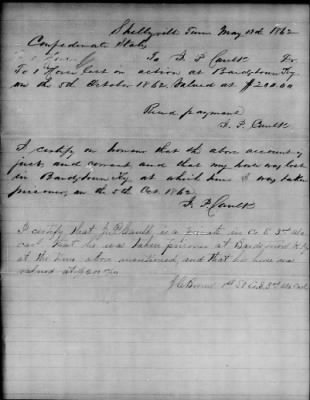 Shelbyville Tenn May 13th 1862
Confederate States
To J. P. Caulk Dr.
To 1 Horse lost in action at Bardstown Ky
on the 5th October 1862. Valued at $200.00
Recd payment
J. P. Caulk
I certify on honour that the above account is
just and correct and that my horse was lost
in Bardstown Ky at which time I was taken
prisoner, on the 5th Oct 1862
J. P. Caulk
I certify that J. P. Caulk is a Private in Co E 3rd
Cavl that he was taken prisoner at Bardstown Ky
at the time above mentioned, and that his horse was
valued at
1st Co E 3rd Cavl